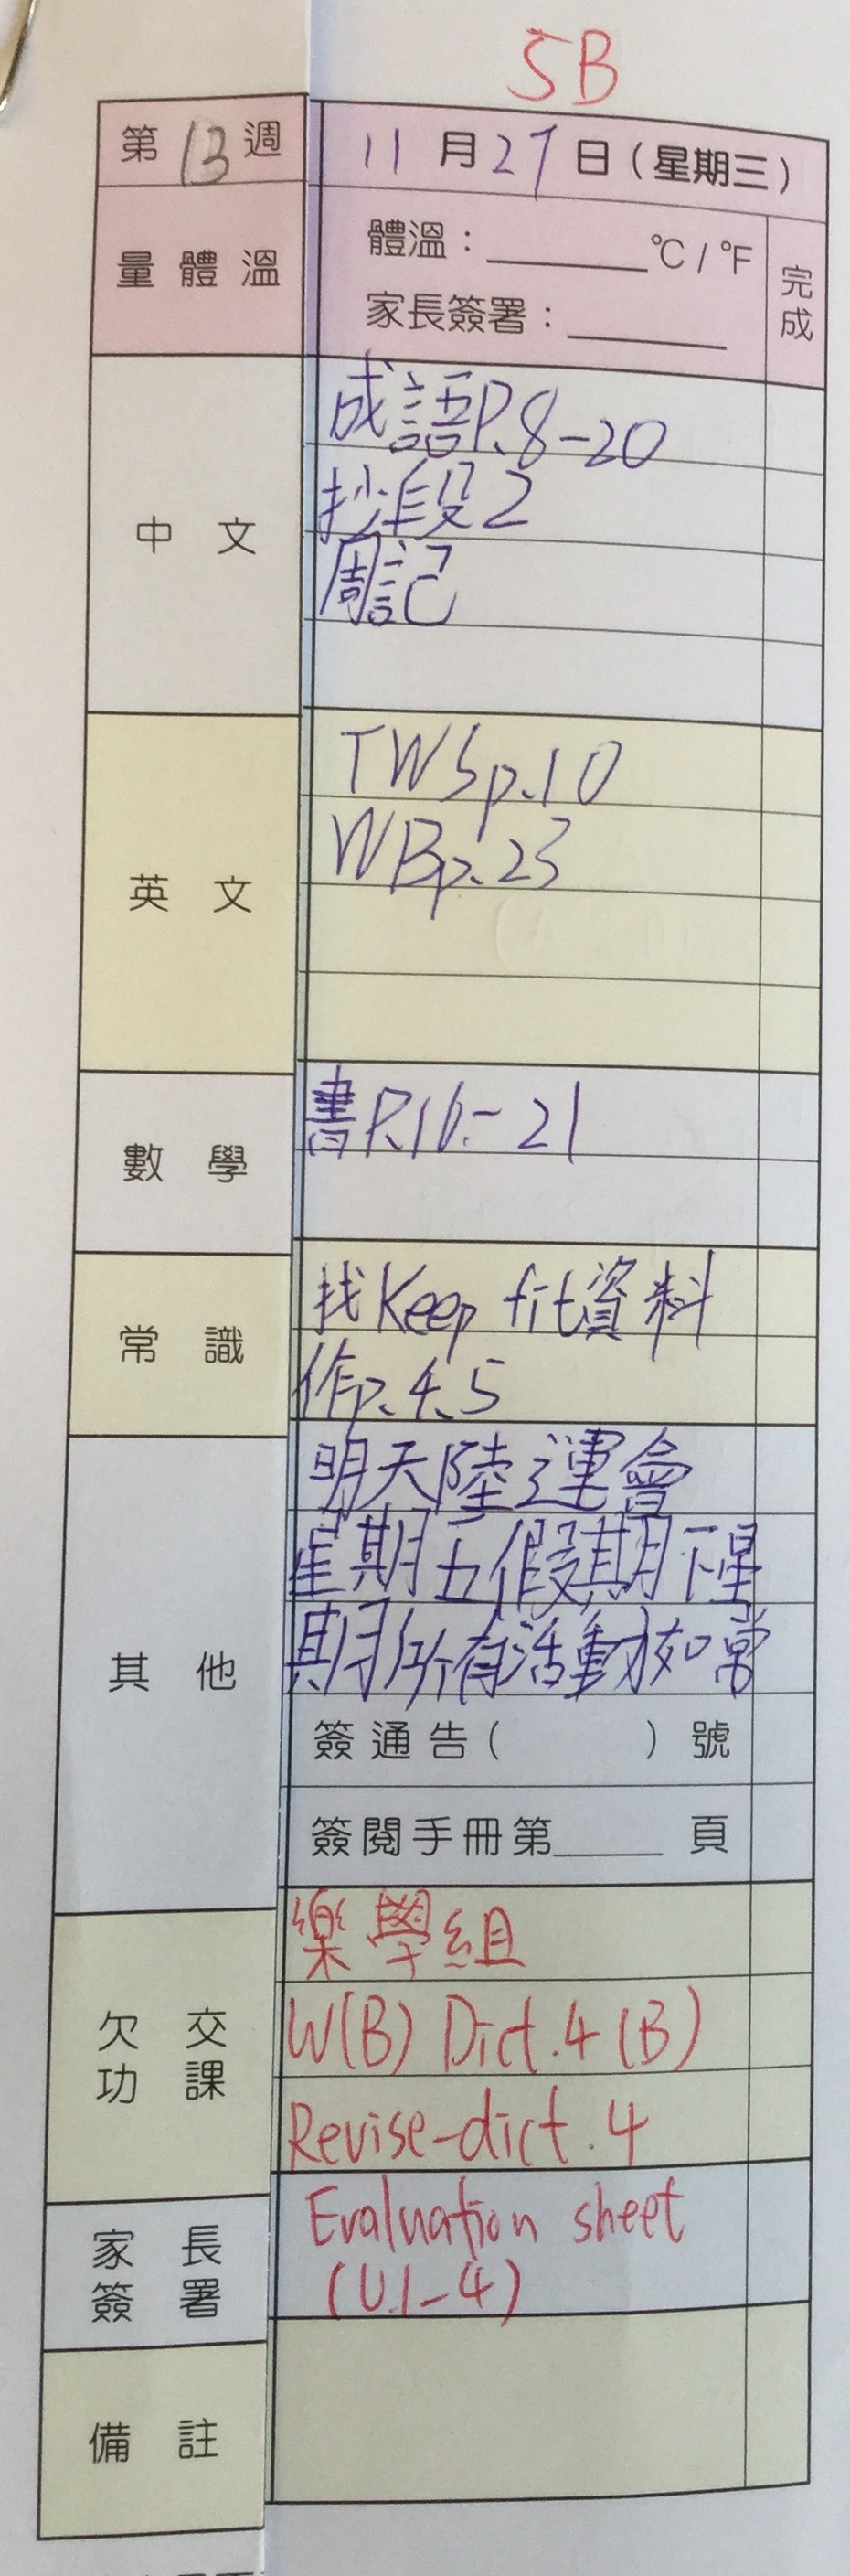 5B
第13週 11月27日(星期三)
量體溫 體溫：______°C / °F 完成
家長簽署：______
中文 成語P.8-20
抄段2
周記
英文 TWSp.10
WBp.23
數學 書P.16-21
常識 找Keep fit資料
作p.4、5
其他 明天陸運會
星期五假期下星
期所有活動如常
簽通告( )號
簽閱手冊第______頁
欠交功課 樂學組
W(B) Dict.4(B)
Revise-dict.4
家長簽署 Evaluation sheet
(U.1-4)
備註